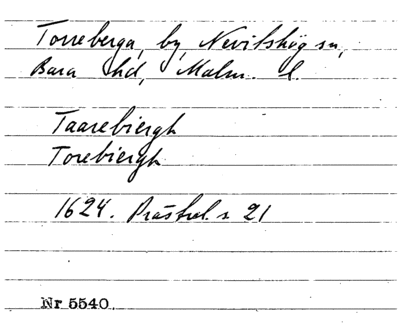 Torreberga, by, Nevitshög sn,
Bara hd, Malm. l.
Taarebiergh
Torebiergh
1624. Prästrel. s 21
Nr 5540.